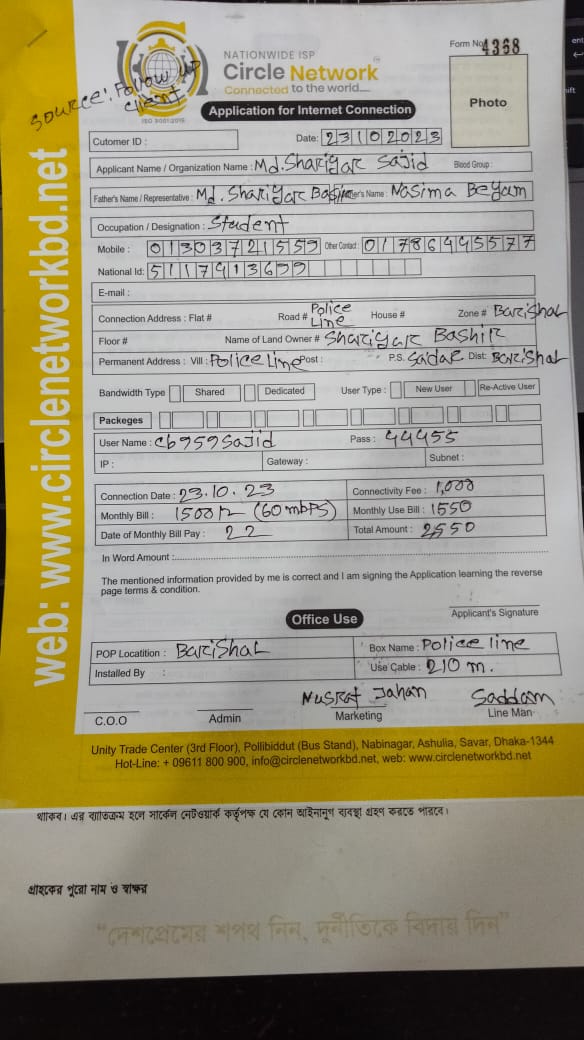 Form No. 4368
NATIONWIDE ISP
Circle Network
Connected to the world....
ISO 9001:2015
Source: Follow UP
Client
Photo
Application for Internet Connection
Cutomer ID :
Date: 23102023
Applicant Name / Organization Name : Md. Shariyar Sajid Blood Group :
Father's Name / Representative : Md. Shariyar Bashir Mother's Name : Nasima Begam
Occupation / Designation : Student
Mobile : 01303721559 Other Contact : 01786445577
National Id: 5117913699
E-mail :
Connection Address : Flat # Road # Police Line House # Zone # Barishal
Floor # Name of Land Owner # Shariyar Bashir
Permanent Address : Vill : Police Line Post : P.S. Sadar Dist: Barishal
Bandwidth Type Shared Dedicated User Type : New User Re-Active User
Packeges
User Name : cb959sajid Pass : 44455
IP : Gateway : Subnet :
Connection Date : 23.10.23 Connectivity Fee : 1,000
Monthly Bill : 1500/= (60 mbps) Monthly Use Bill : 1550
Date of Monthly Bill Pay : 22 Total Amount : 2550
In Word Amount :
The mentioned information provided by me is correct and I am signing the Application learning the reverse
page terms & condition.
Applicant's Signature
Office Use
POP Locatition : Barishal Box Name : Police line
Installed By : Use Cable : 210 m.
Nusrat Jahan Saddam
C.O.O Admin Marketing Line Man
Unity Trade Center (3rd Floor), Pollibiddut (Bus Stand), Nabinagar, Ashulia, Savar, Dhaka-1344
Hot-Line: + 09611 800 900, info@circlenetworkbd.net, web: www.circlenetworkbd.net
web: www.circlenetworkbd.net
থাকিব। এর ব্যতিক্রম হলে সার্কেল নেটওয়ার্ক কর্তৃপক্ষ যে কোন আইনানুগ ব্যবস্থা গ্রহণ করতে পারবে।
গ্রাহকের পুরো নাম ও স্বাক্ষর
“দেশপ্রেমের শপথ নিন, দুর্নীতিকে বিদায় দিন”